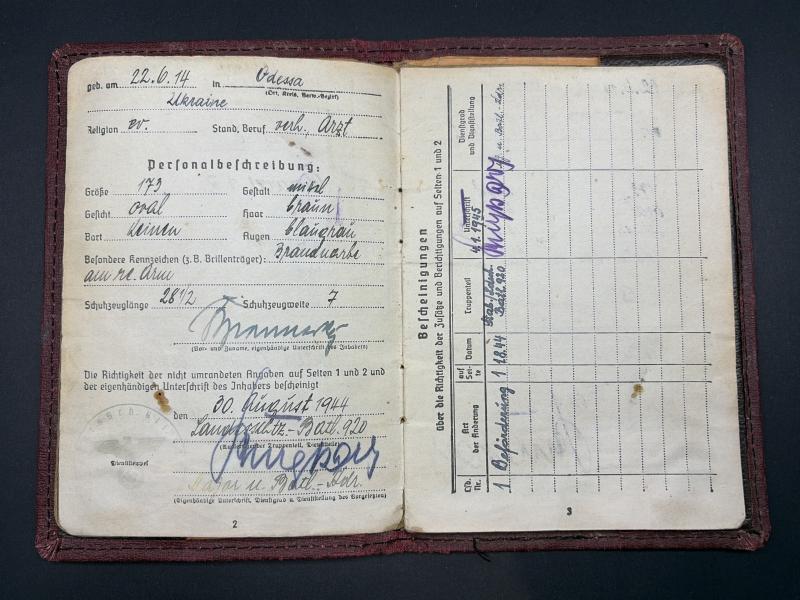 geb. am 22.6.14 in Odessa
(Ort, Kreis, Verw.-Bezirk)
Ukraine
Religion ev. Stand, Beruf verh. Arzt
Personalbeschreibung:
Größe 173 Gestalt mittel
Gesicht oval Haar braun
Bart keinen Augen blaugrau
Besondere Kennzeichen (z. B. Brillenträger): Brandnarbe
am re. Arm
Schuhzeuglänge 28 1/2 Schuhzeugweite 7
(Vor- und Zuname, eigenhändige Unterschrift des Inhabers)
Die Richtigkeit der nicht umrandeten Angaben auf Seiten 1 und 2 und
der eigenhändigen Unterschrift des Inhabers bescheinigt
den 30. August 1944
Landesschtz.-Batl. 920
Dienststempel
Major u. Batl.-Kdr.
(Eigenhändige Unterschrift, Dienstgrad u. Dienststellung des Vorgesetzten)
2
Bescheinigungen
über die Richtigkeit der Zusätze und Berichtigungen auf Seiten 1 und 2
Lfd. Nr.
Art der Änderung
auf Seite
Datum
Truppenteil
Unterschrift
Dienstgrad und Dienststellung
1 Beförderung 1 1.8.44 Batl. 920
4.1.1945
3